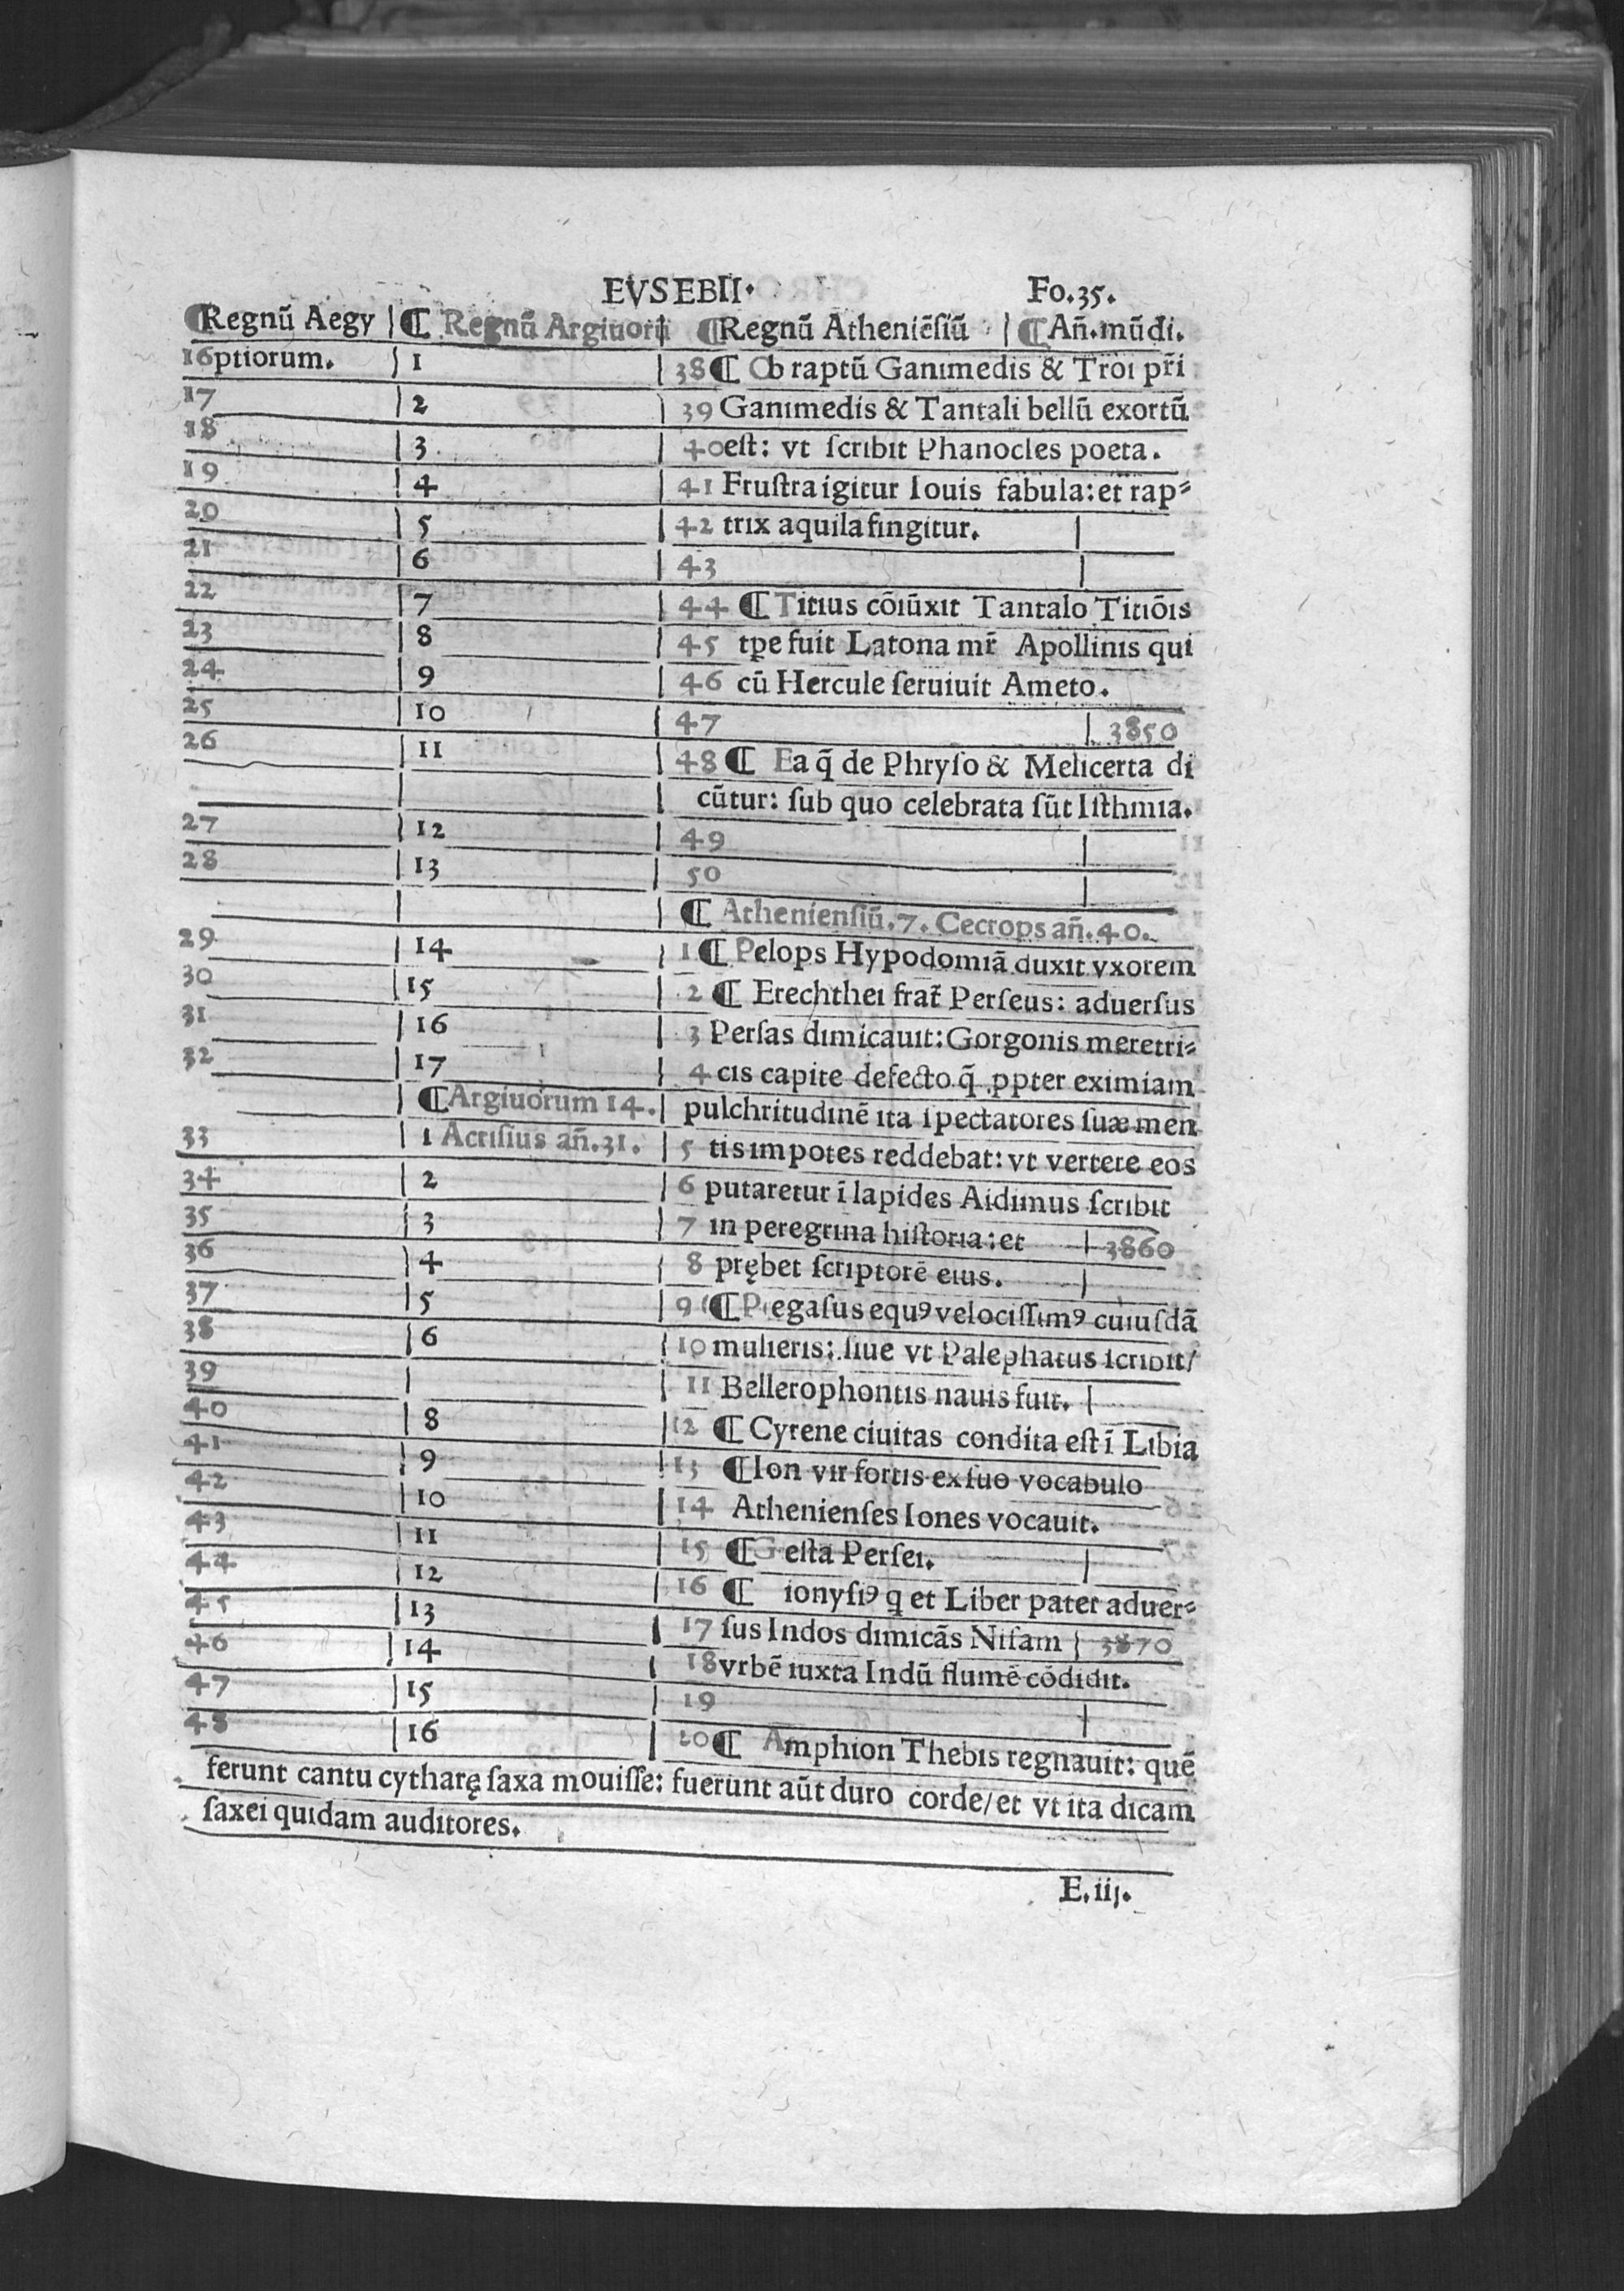 EVSEBII. Fo.35.
¶Regnū Aegy | ¶ Regnū Argiuorū | ¶Regnū Atheniēsiū | ¶Añ.mūdi.
16ptiorum. | 1 | 38¶ Ob raptū Ganimedis & Troi pr̄i
17 | 2 | 39 Ganimedis & Tantali bellū exortū
18 | 3 | 40est: vt ſcribit Phanocles poeta.
19 | 4 | 41 Fruſtra igitur Iouis fabula: et rap⸗
20 | 5 | 42 trix aquila fingitur. |
21 | 6 | 43 |
22 | 7 | 44 ¶Titius cōiūxit Tantalo Titiōis
23 | 8 | 45 tpe fuit Latona mr̄ Apollinis qui
24 | 9 | 46 cū Hercule ſeruiuit Ameto.
25 | 10 | 47 | 3850
26 | 11 | 48¶ Ea q̄ de Phryſo & Melicerta di
| | cūtur: ſub quo celebrata ſūt Iſthmia.
27 | 12 | 49 |
28 | 13 | 50 |
| | ¶ Athenienſiū.7. Cecrops añ.40.
29 | 14 | 1¶ Pelops Hypodomiā duxit vxorem
30 | 15 | 2 ¶ Erechthei frat̄ Perſeus: aduerſus
31 | 16 | 3 Perſas dimicauit: Gorgonis meretri⸗
32 | 17 | 4 cis capite defecto q̄ ꝓpter eximiam
| ¶Argiuorum 14. | pulchritudinē ita ſpectatores ſuæ men
33 | 1 Acriſius añ.31. | 5 tis impotes reddebat: vt vertere eos
34 | 2 | 6 putaretur ī lapides Aidimus ſcribit
35 | 3 | 7 in peregrina hiſtoria: et | 3860
36 | 4 | 8 prębet ſcriptorē eius. |
37 | 5 | 9 ¶Pegaſus equꝰ velociſſimꝰ cuiuſdā
38 | 6 | 10 mulieris: ſiue vt Palephatus ſcribit/
39 | | 11 Bellerophontis nauis fuit. |
40 | 8 | 12 ¶ Cyrene ciuitas condita eſt ī Libia
41 | 9 | 13 ¶Ion vir fortis ex ſuo vocabulo
42 | 10 | 14 Athenienſes Iones vocauit.
43 | 11 | 15 ¶Geſta Perſei. |
44 | 12 | 16 ¶ ionyſiꝰ q et Liber pater aduer⸗
45 | 13 | 17 ſus Indos dimicās Niſam | 3870
46 | 14 | 18vrbē iuxta Indū flumē cōdidit.
47 | 15 | 19 |
48 | 16 | 20¶ Amphion Thebis regnauit: quē
ferunt cantu cytharę ſaxa mouiſſe: fuerunt aūt duro corde/et vt ita dicam
ſaxei quidam auditores.
E.iij.